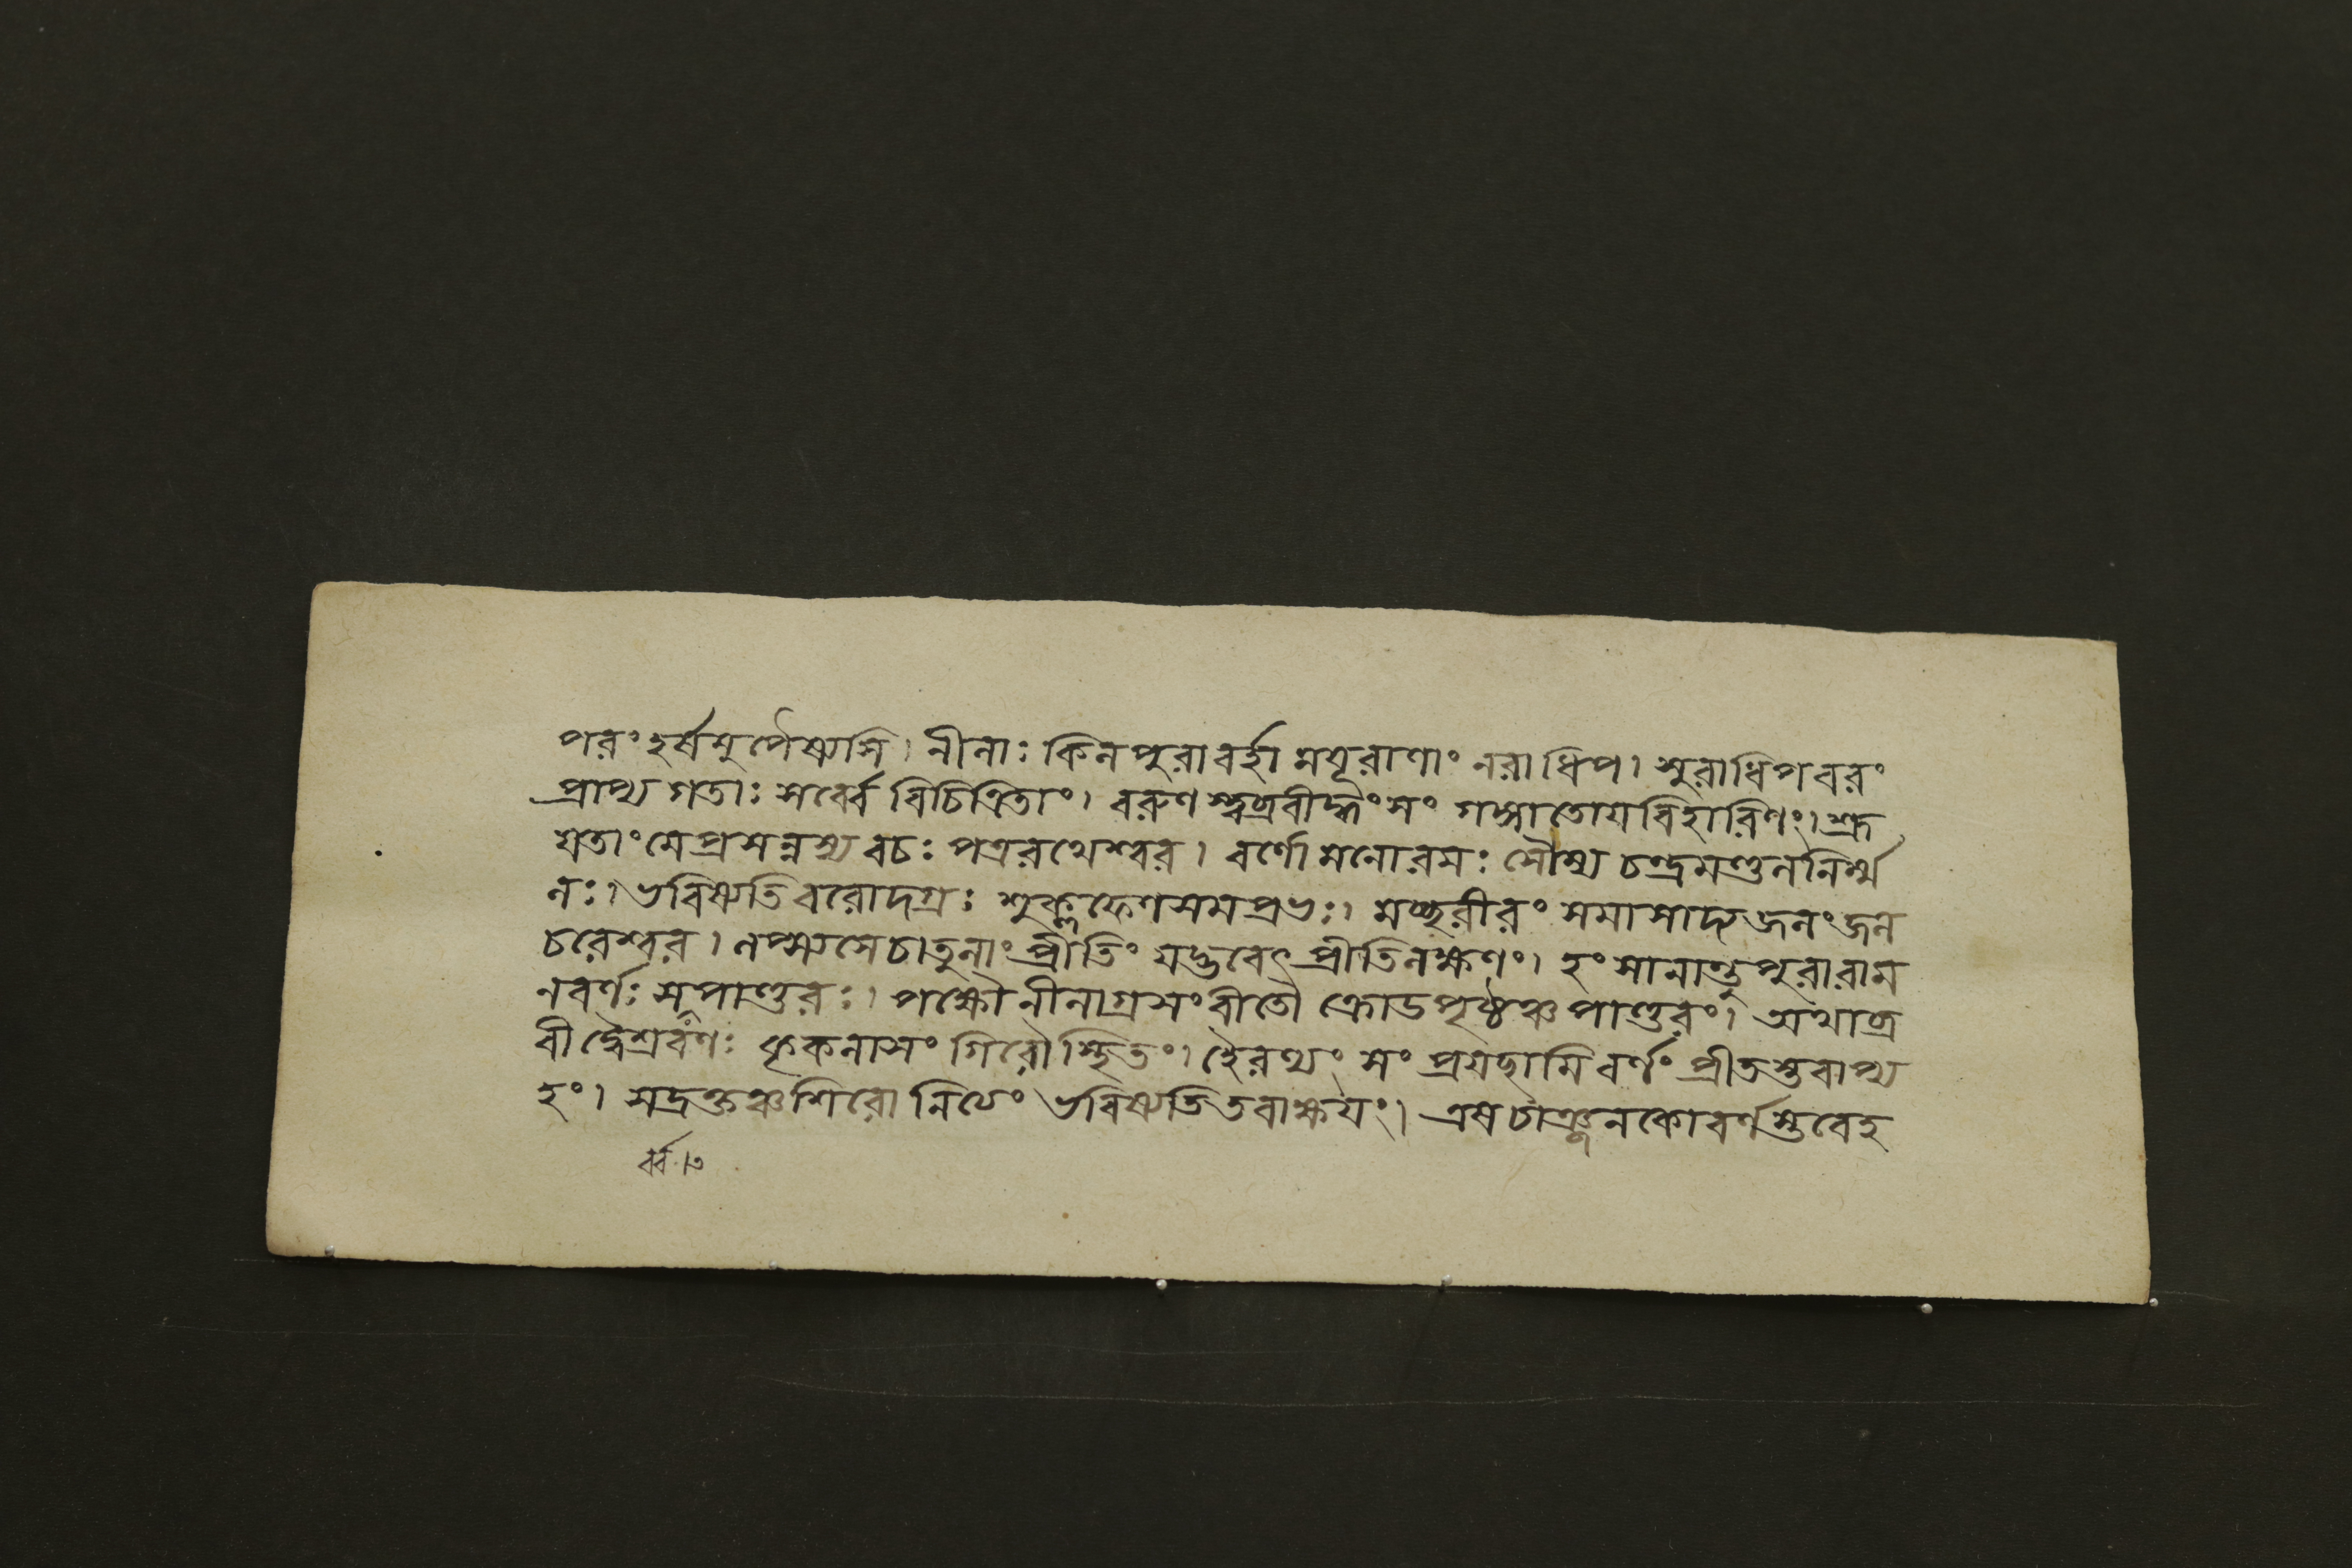 পরং হর্ষমুপৈষ্যসি। নীলাঃ কিল পুরা বর্হা ময়ূরাণাং নরাধিপ। শুরাধিপবরং
প্রাপ্য গতাঃ সর্ব্বে বিচিত্রিতাং। বরুণস্ত্বব্রবীদ্ধংসং গঙ্গাতোয়বিহারিণং। শ্রূ
য়তাং মে প্রসন্নস্য বচঃ পত্ররথেশ্বর। বর্ণো মনোরমঃ সৌম্য চন্দ্রমণ্ডলনির্ম্ম
লঃ। ভবিষ্যতি বরোদগ্রঃ শুক্লফেণসমপ্রভঃ। মচ্ছরীরং সমাসাদ্য জলং জল
চরেশ্বর। লপ্স্যসে চাতুলাং প্রীতিং মদ্ভবেৎ প্রীতিলক্ষণং। হংসানান্তু পুরা রাম
নবর্ণঃ সূপাণ্ডরঃ। পক্ষৌ নীলাগ্রসংবীতৌ ক্রোডপৃষ্ঠঞ্চ পাণ্ডরং। অথাব্র
বীদ্বৈশ্রবণঃ কৃকলাসং গিরৌ স্থিতং। হৈরণ্যং সংপ্রযছামি বর্ণং প্রীতস্তবাপ্য
হং। সদ্রক্তঞ্চ শিরো নিত্যং ভবিষ্যতি তবাক্ষয়ং। এষ চাঞ্জনকো বর্ণস্তবেহ